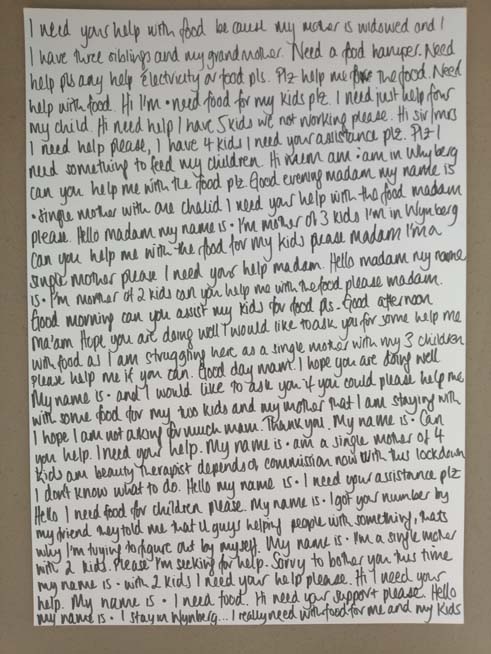 I need your help with food be cause my mother is widowed and I
I have three siblings and my grandmother. Need a food hamper. Need
help pls any help electricity or food pls. Plz help me for the food. Need
help with food. Hi I'm • need food for my kids plz. I need just help four
my child. Hi need help I have 5 kids we not working please. Hi sir/mrs
I need help please, I have 4 kids I need your assistance plz. Plz I
need something to feed my children. Hi mem am • am in Whyberg
can you help me with the food plz. Good evening madam my name is
• single mother with one chalid I need your help with the food madam
please. Hello madam my name is • I'm mother of 3 kids I'm in Wynberg
can you help me with the food for my kids pease madam I'm a
single mother please I need your help madam. Hello madam my name
is • I'm mother of 2 kids can you help me with the food please madam.
Good morning can you assist my kids for food pls. Good afternoon
ma'am Hope you are doing well I would like to ask you for some help me
with food as I am struggling here as a single mother with my 3 children
please help me if you can. Good day mam. I hope you are doing well
My name is • and I would like to ask you if you could please help me
with some food for my too kids and my mother that I am staying with
I hope I am not asking for much mam. Thank you. My name is • Can
you help. I need your help. My name is • am a single mother of 4
kids am beauty therapist depends of commission now with this lockdown
I don't know what to do. Hello my name is • I need your assistance plz
Hello I need food for children please. My name is • I got your number by
my friend they told me that U guys helping people with something, thats
why I'm tuying to figure out by myself. My name is • I'm a single mother
with 2 kids. Please I'm seeking for help. Sorry to bother you this time
my name is • with 2 kids I need your help please. Hi I need your
help. My name is • I need food. Hi need your support please. Hello
my name is • I stay in Wynberg... I really need with food for me and my kids